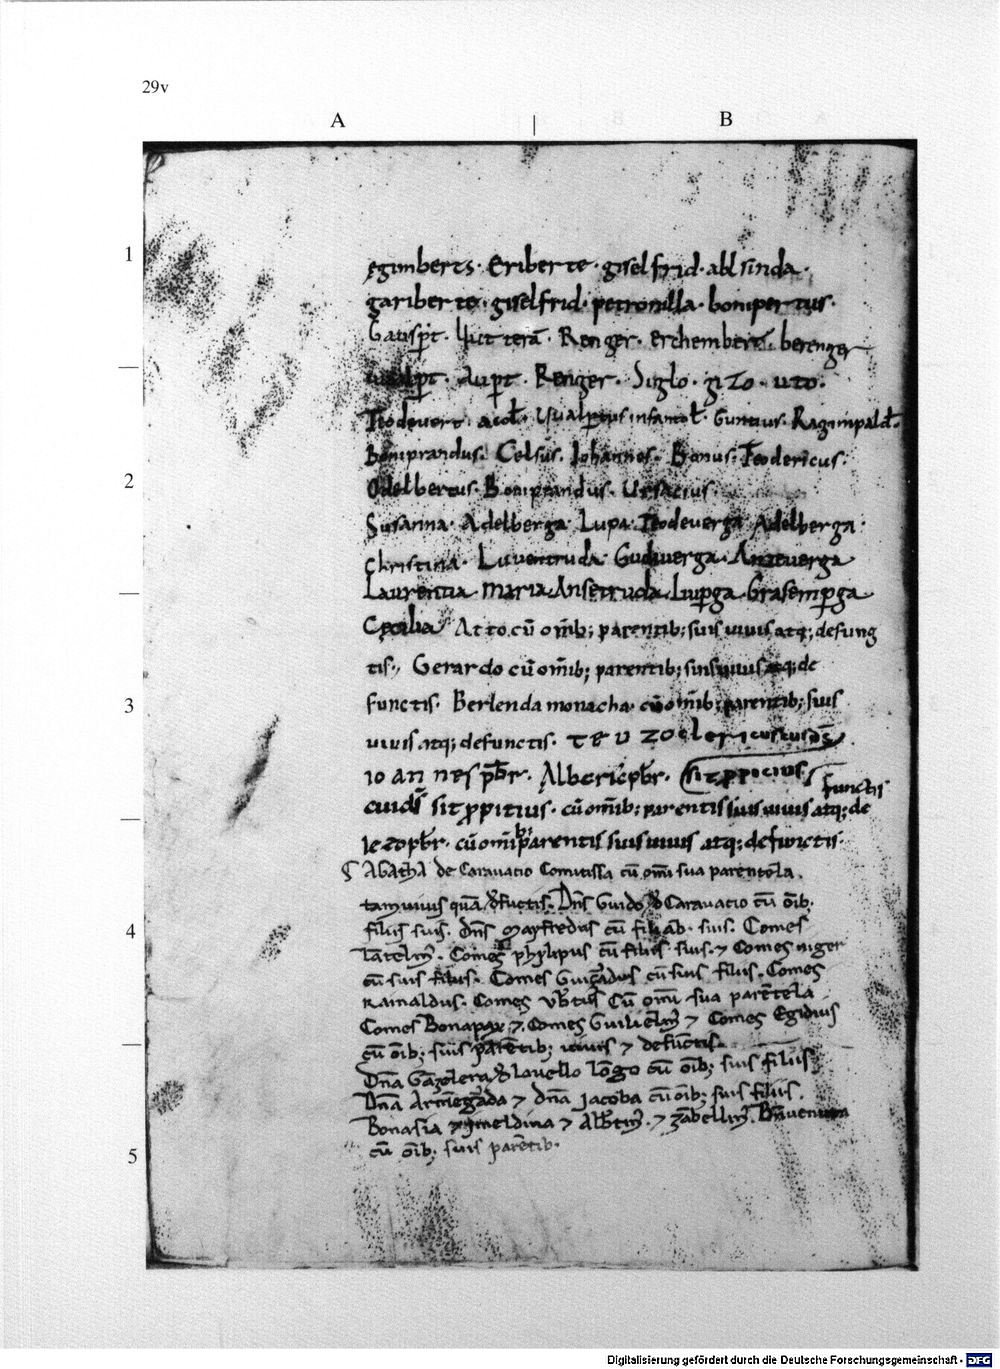 29v
A | B
1
ęgimberts · Eriberte · giselfrid · ablsinda ·
gariberte · giselfrid · petronilla · bompertus ·
Gausp̄t · Renger · erchembert · berenger
Aup̄t · Renger · Siglo · gizo · uto ·
Teodevert · acol̄ · Uualpertus infantol̄ · Guntius · Raginpald̄ ·
Bomprandus · Celsus · Iohannes · Bonus · Teodericus ·
2
Odelbertus · Bomprandus · Ursacius ·
Susanna · Adelberga · Lupa · Teodeuerga · Adelberga ·
christina · Liuuentruda · Guduuerga · Anzeuerga
Laurentia · Maria · Ansetruda · Liup̄ga · Grasemp̄ga
Cęcilia Atto cū om̄ib; parentib; suis uiuis atq; defunc
tis ·, Gerardo cū om̄ib; parentib; suis uiuis atq; de
3
functis · Berlenda monacha · cū om̄ib; parentib; suis
uiuis atq; defunctis · teuzo clericus
ioannes pb̄r · Albericpb̄r · sit ppicius
functis
cui dš sit p̄pitius · cū om̄ib; parentis suis uiuis atq; de
leo pb̄r · cū omib; parentis suis uiuis atq; defunctis ·
Agatha de Carauacio Comitissa cū om̄i sua parentela ·
tam uiuis quā d̄functis · Dn̄s Guido d̄ Carauacio cū oīb;
4
filiis suis · dn̄s mayfredus cū filiab · suis · Comes
lātelm̄ · Comes phylipus cū filiis suis · ⁊ Comes niger
cū suis filiis · Comes Guiz̄adus cū suis filiis · Comes
Rainaldus · Comes Ub̄tus Cū om̄i sua parētela
Comes Bonapax ⁊ · Comes Guilielm̄ ⁊ Comes Egidius
cū oīb; suis parētib; uiuis ⁊ defūctis ·
Dn̄a d̄ louello lōgo cū oīb; suis filiis
Dn̄a Armēg̅ada ⁊ dn̄a jacoba cū oīb; suis filiis ·
Bonasia ymeldina ⁊ Alb̄tin̄ · ⁊ zābellin̄ · Bn̄uenuta
5
cū oīb; suis parētib ·
Digitalisierung gefördert durch die Deutsche Forschungsgemeinschaft - DFG